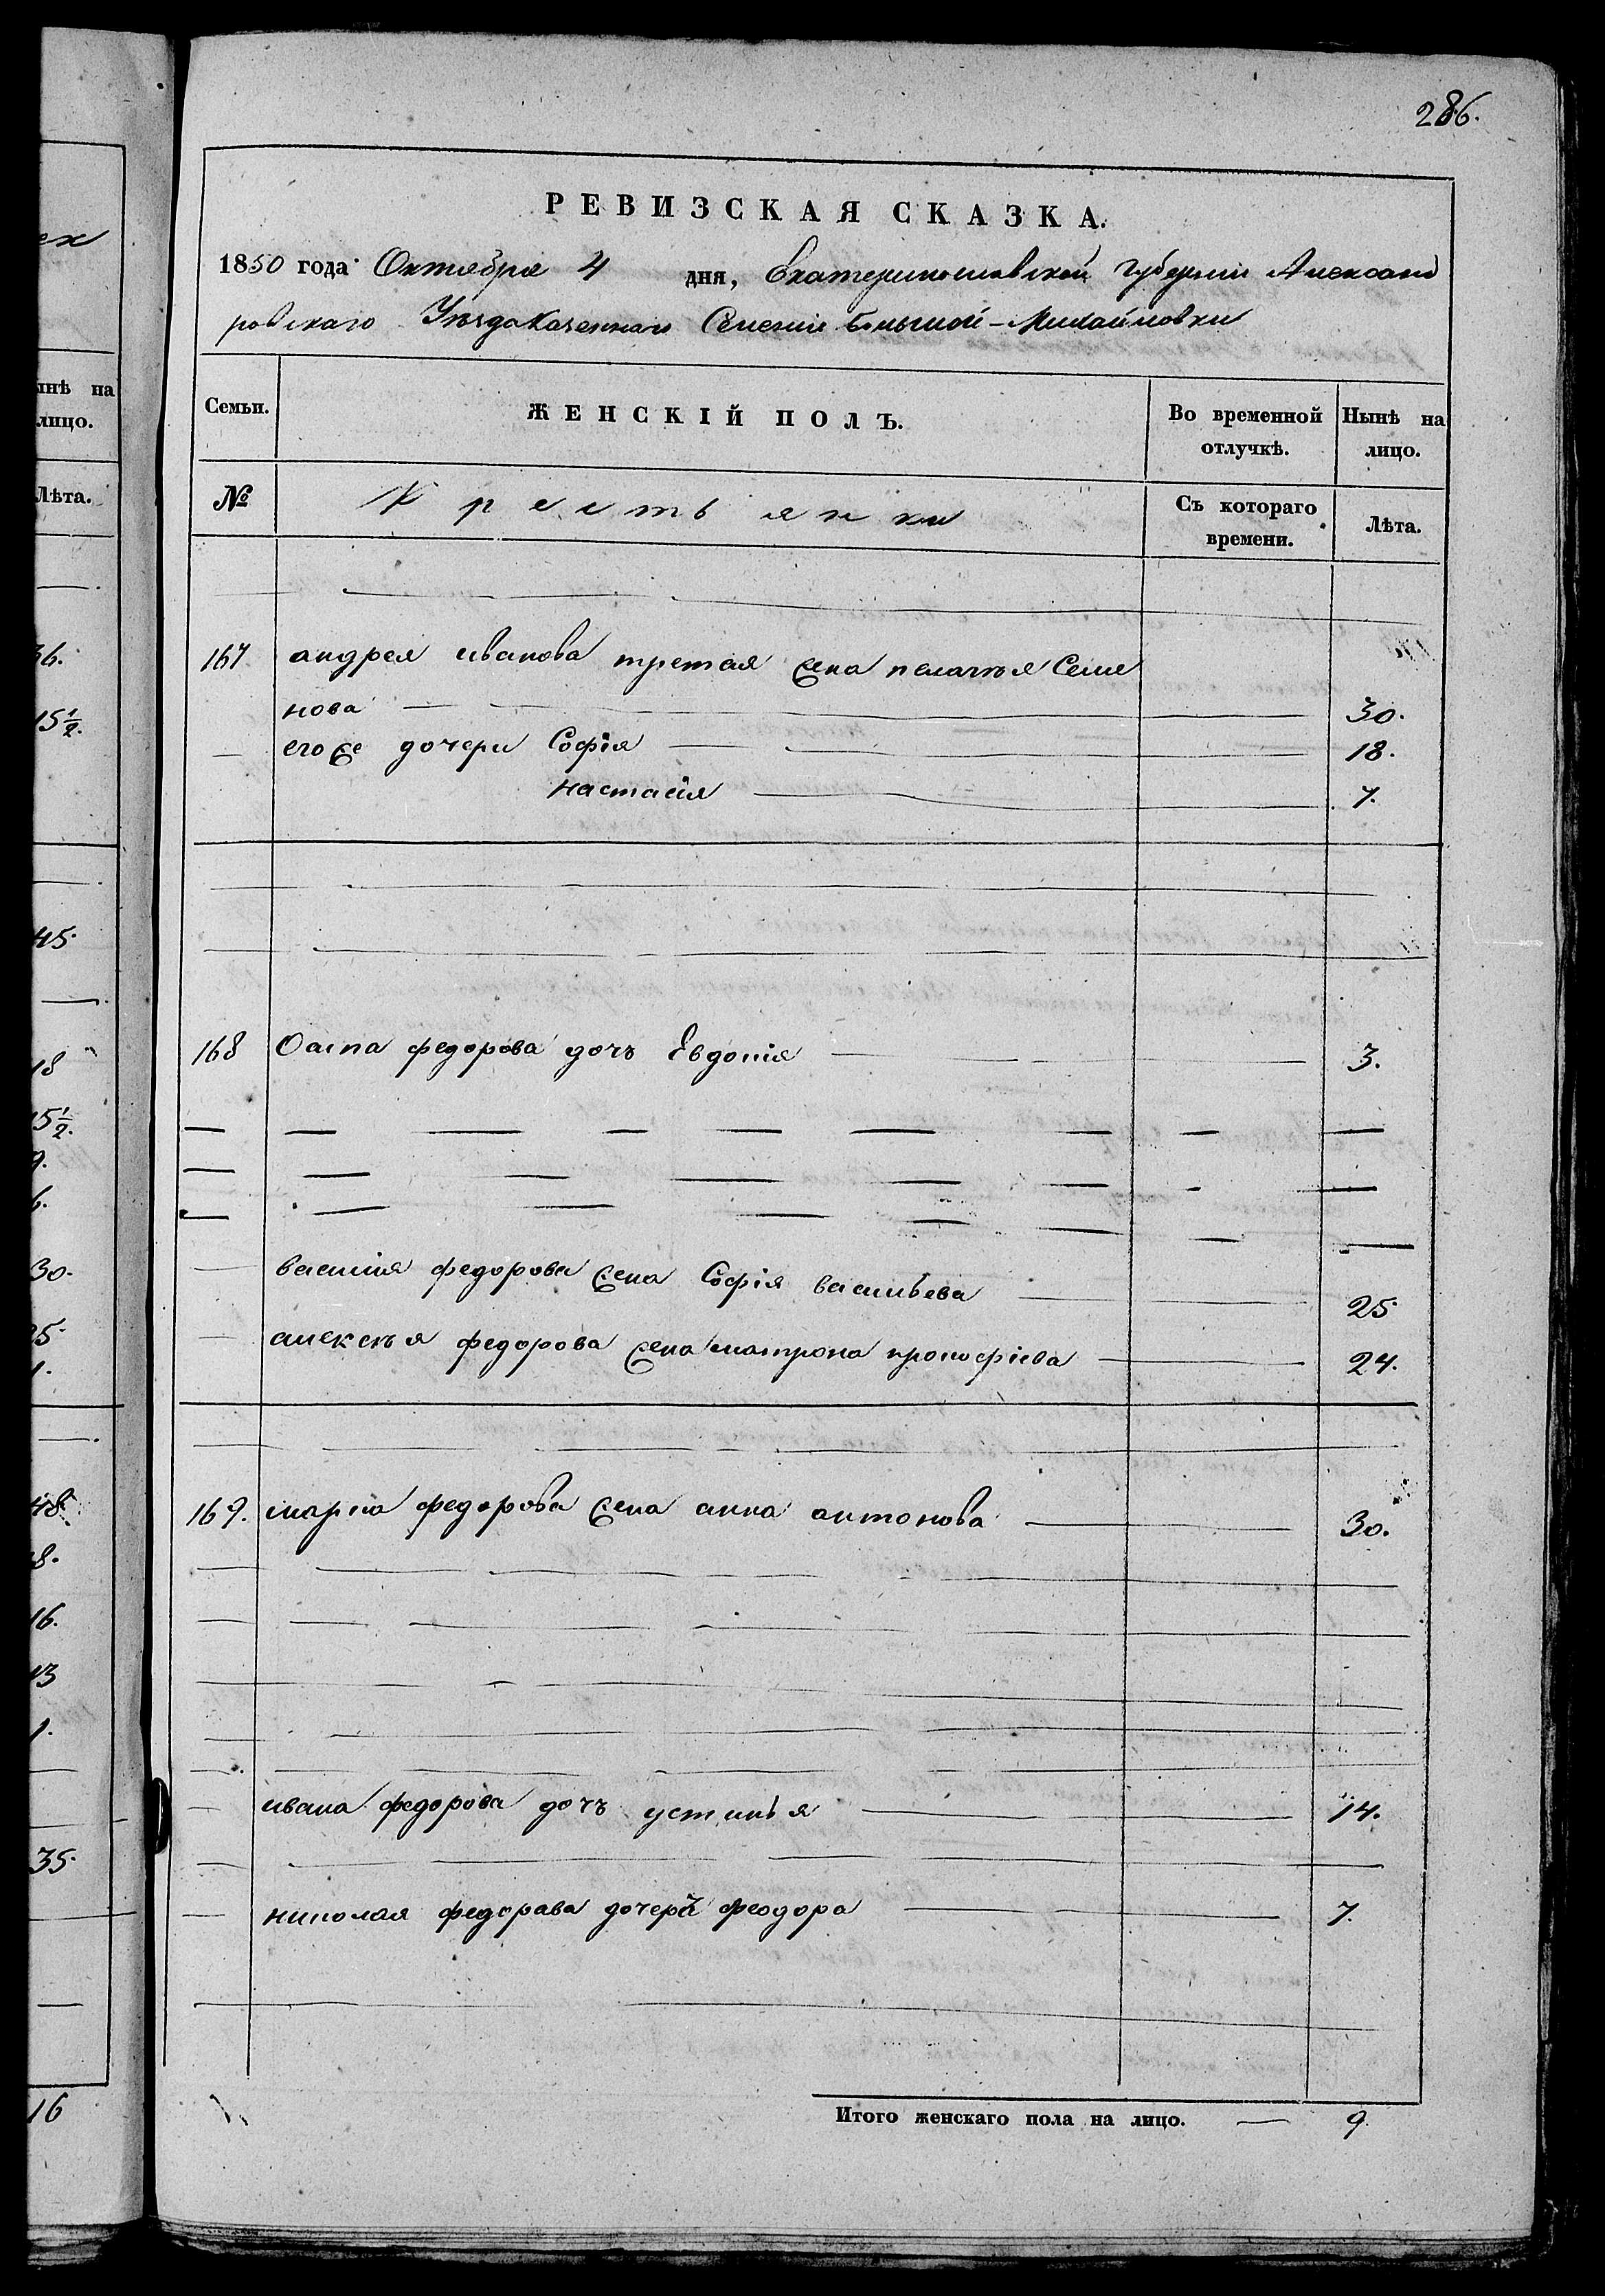 286.
РЕВИЗСКАЯ СКАЗКА.
1850 года Октября 4 дня, Екатеринославской Губернии Александ
ровскаго Уѣзда Казеннаго Селенія Большой-Михайловки
Семьи. ЖЕНСКІЙ ПОЛЪ. Во временной отлучкѣ. Нынѣ на лицо.
№ Крестьянки Съ котораго времени. Лѣта.
167 андрея иванова третая жена пелагѣя Семе
нова 30.
его же дочери Софія 18.
настасія 7.
168 Осипа федорова дочъ Евдокія 3.
василія федорова жена Софія васильева 25
алексѣя федорова жена матрона прокофіева 24.
169. марка федорова жена анна антонова 30.
ивана федорова дочъ устинья 14.
николая федорава дочеръ феодора 7.
Итого женскаго пола на лицо. 9.
ынѣ на
лицо.
Лѣта.
36.
15½.
45.
18
15½.
9.
6.
30.
25.
1.
48.
8.
16.
13
1.
35.
16